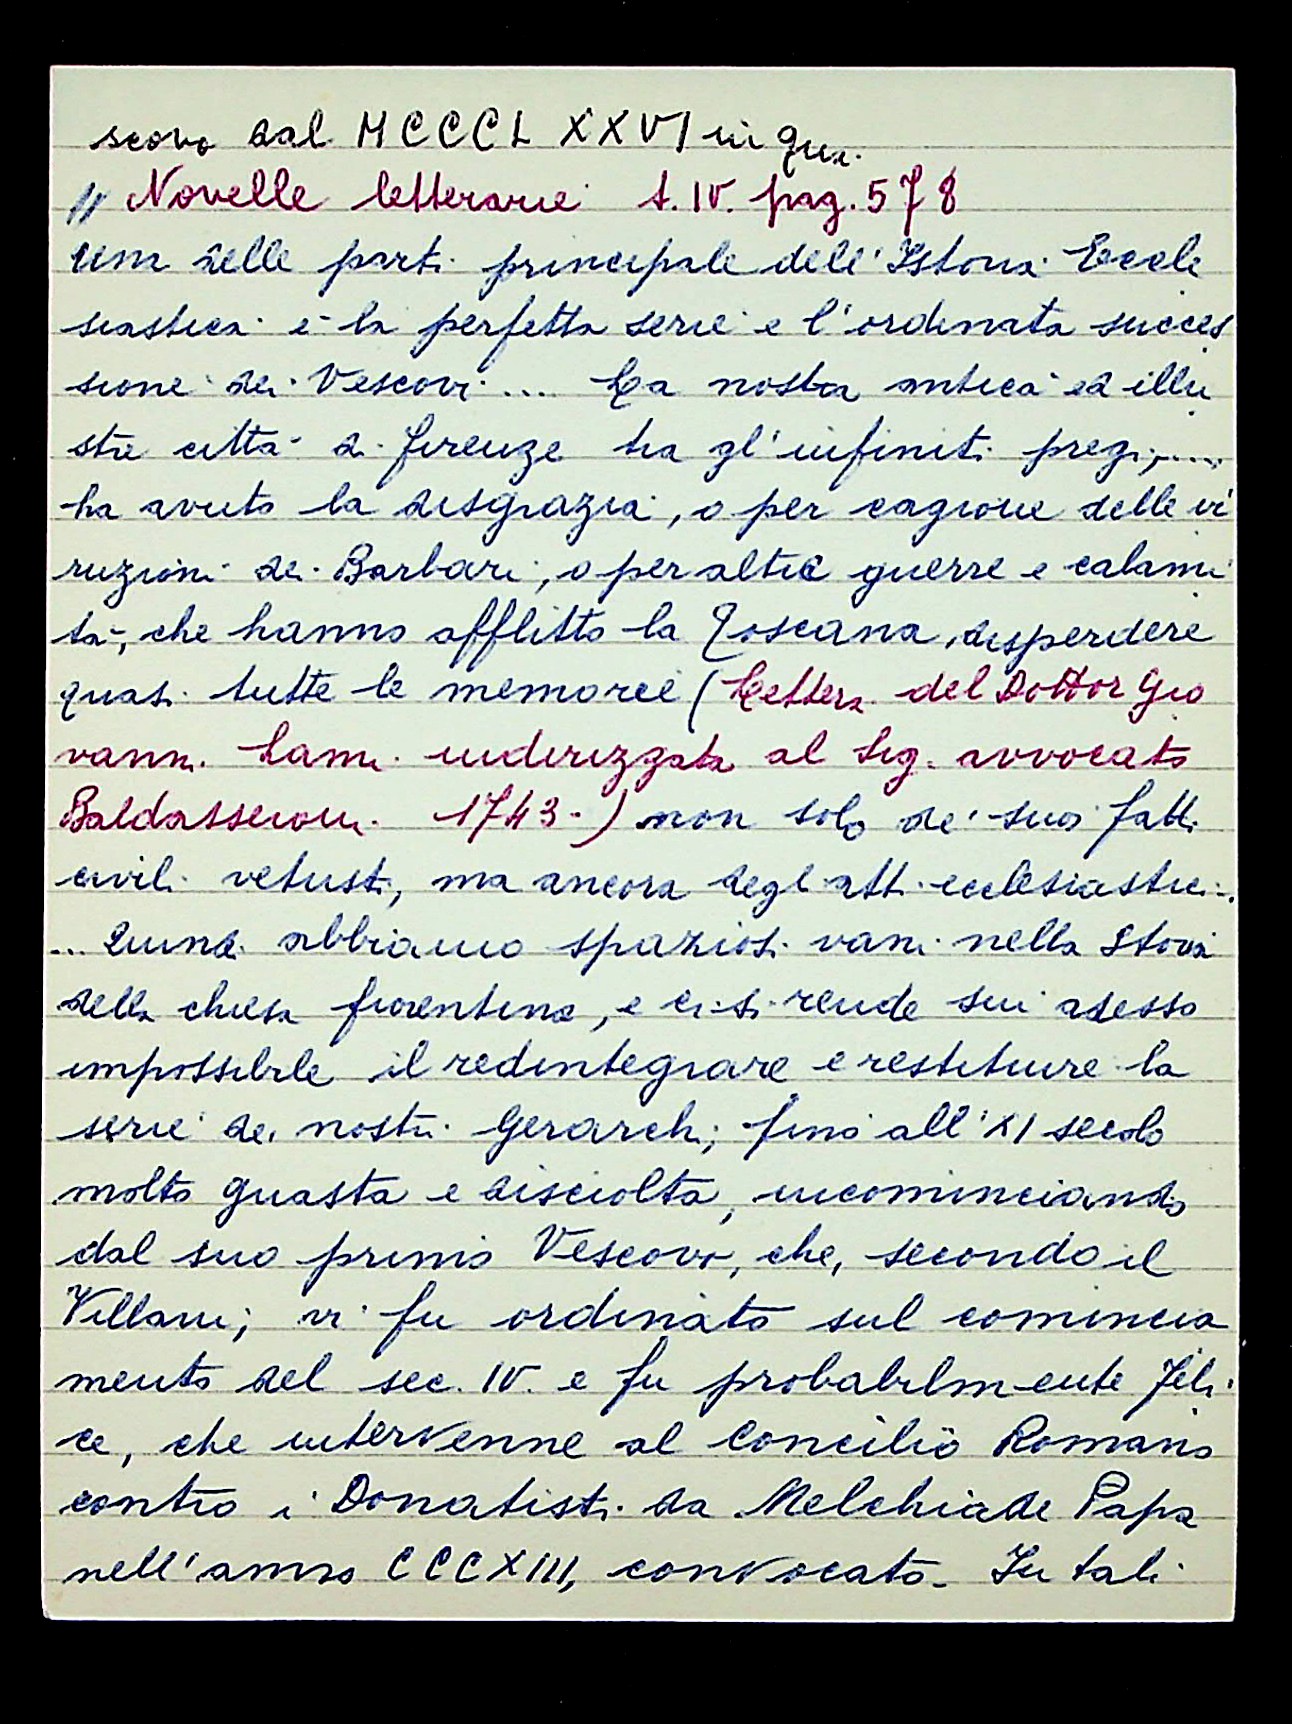 scovo dal MCCCLXXVI in qua.
// Novelle letterarie t. IV. pag. 578
una delle parti principale dell'Istoria Eccle
siastica è la perfetta serie e l'ordinata succes
sione dei Vescovi .... La nostra antica ed illu
stre città di Firenze tra gl'infiniti pregi, ....
ha avuto la disgrazia, o per cagione delle ir
ruzioni dei Barbari, o per altre guerre e calami
tà, che hanno afflitto la Toscana, disperdere
quasi tutte le memorie (Lettera del Dottor Gio
vanni Lami indirizzata al Sig. avvocato
Baldasseroni 1743-) non solo de' suoi fatti
civili vetusti, ma ancora degl'atti ecclesiastici..
... Quindi abbiamo spaziosi vani nella Storia
della chiesa fiorentina, e ci si rende sin adesso
impossibile il redintegrare e restituire la
serie dei nostri Gerarchi, fino all'XI secolo
molto guasta e disciolta, incominciando
dal suo primo Vescovo, che, secondo il
Villani, vi fu ordinato sul comincia
mento del sec. IV. e fu probabilmente Feli
ce, che intervenne al Concilio Romano
contro i Donatisti da Melchiade Papa
nell'anno CCCXIII, convocato. In tali